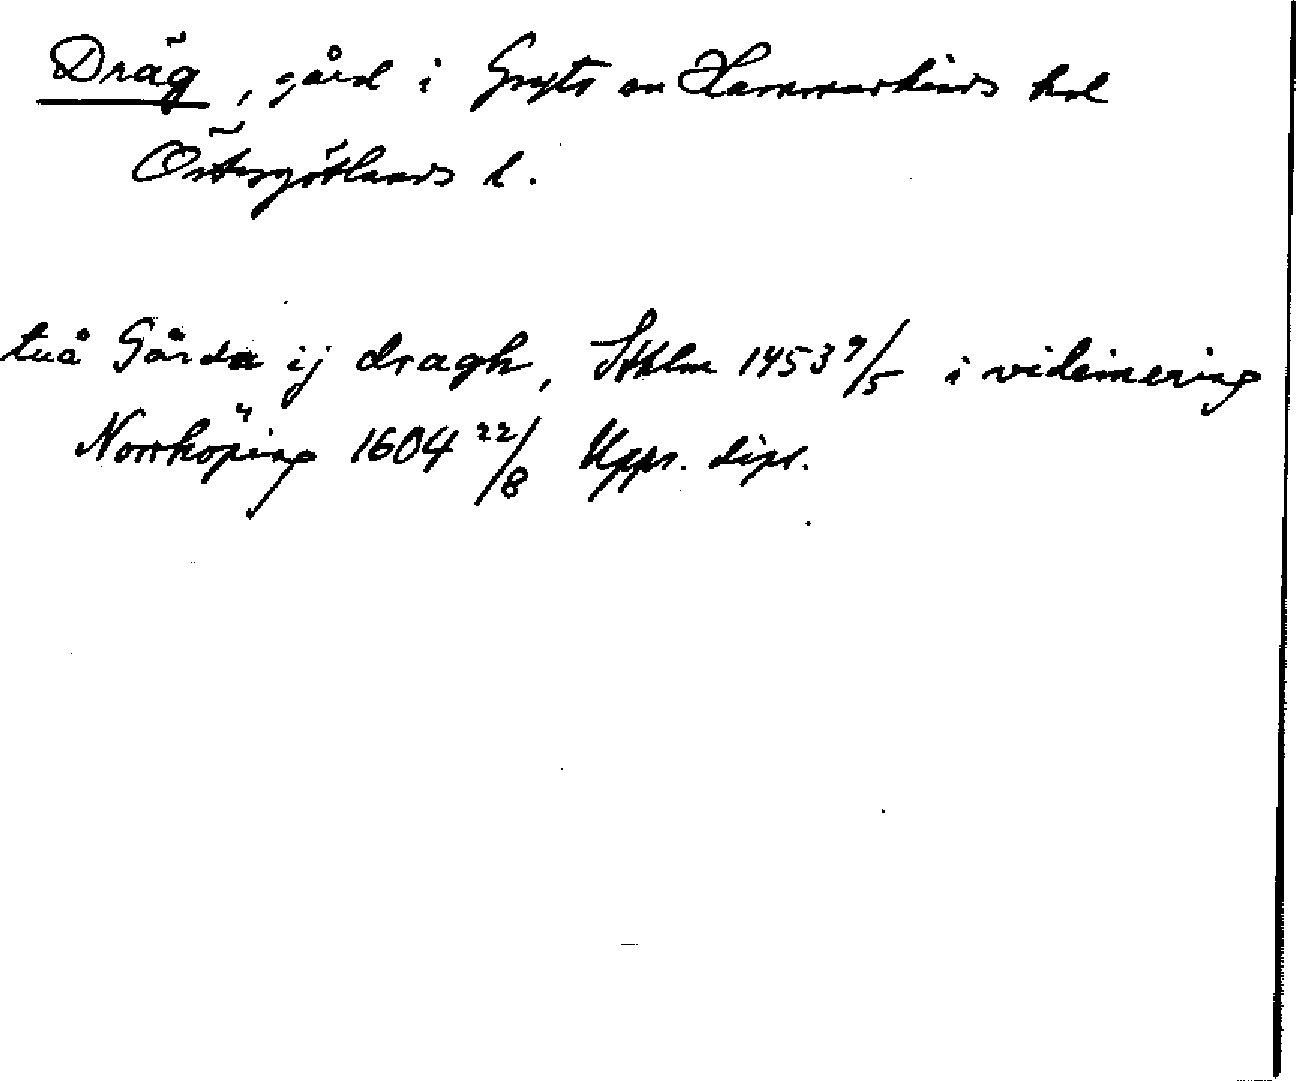 Dräg, gård i Gryts sn Hammarkinds hd
Östergötlands l.
tuå Gårda ij dragh, Sthlm 1453 9/5 i vidimering
Norrköping 1604 22/8 Upps. dipl.